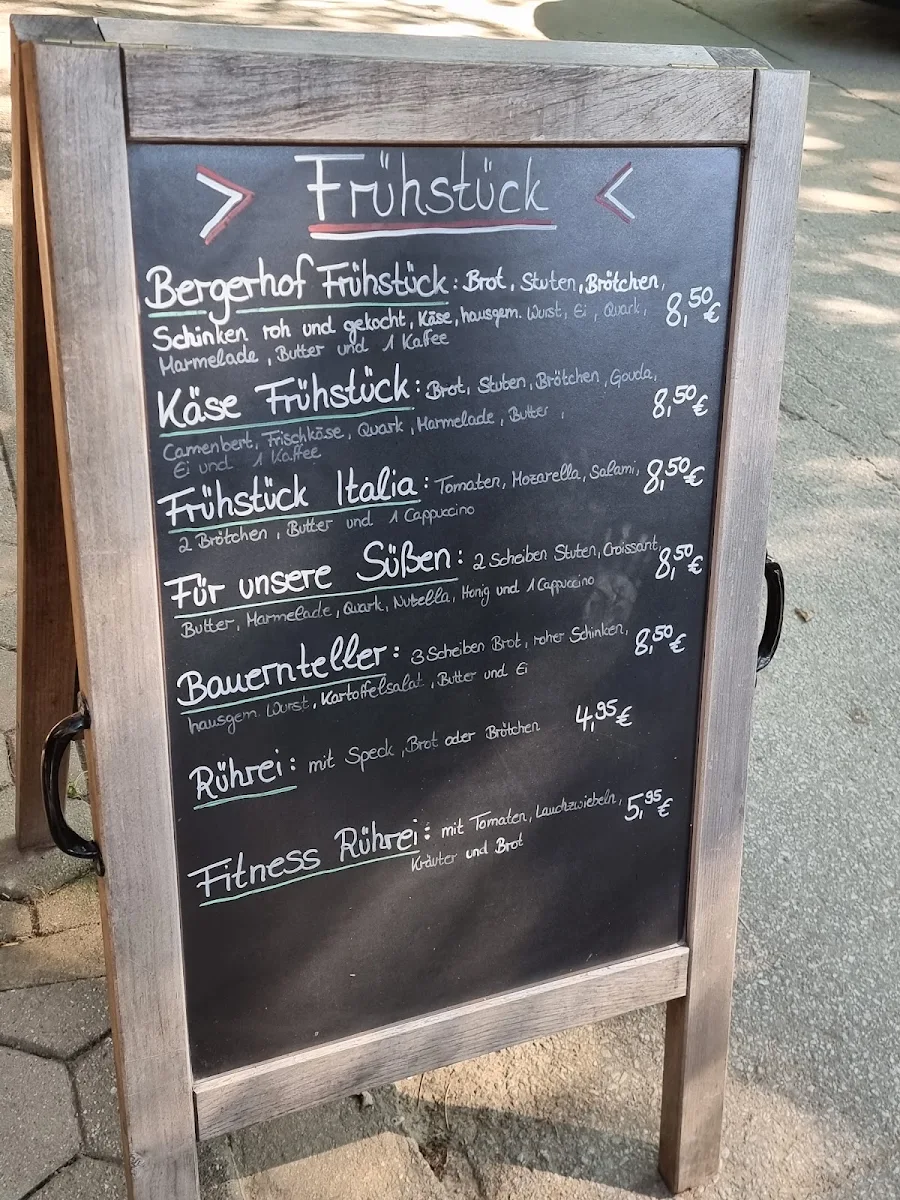 > Frühstück <
Bergerhof Frühstück: Brot, Stuten, Brötchen,
Schinken roh und gekocht, Käse, hausgem. Wurst, Ei, Quark, 8,50€
Marmelade, Butter und 1 Kaffee
Käse Frühstück: Brot, Stuten, Brötchen, Gouda, 8,50€
Camenbert, Frischkäse, Quark, Marmelade, Butter,
Ei und 1 Kaffee
Frühstück Italia: Tomaten, Mozarella, Salami, 8,50€
2 Brötchen, Butter und 1 Cappuccino
Für unsere Süßen: 2 Scheiben Stuten, Croissant, 8,50€
Butter, Marmelade, Quark, Nutella, Honig und 1 Cappuccino
Bauernteller: 3 Scheiben Brot, roher Schinken, 8,50€
hausgem. Wurst, Kartoffelsalat, Butter und Ei
Rührei: mit Speck, Brot oder Brötchen 4,95€
Fitness Rührei: mit Tomaten, Lauchzwiebeln, 5,95€
Kräuter und Brot